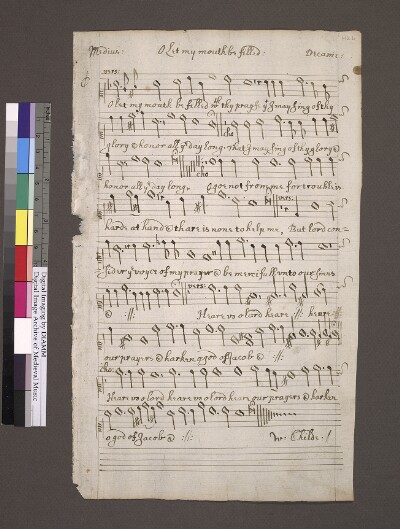 Medius: O Let my mouth be filled: Decani:
vers:
O let my mouth be filled wth thy prayse yt I may sing of thy
cho
glory & honor all ye day long. That I may sing of thy glory &
cho
honor all ye day long. Goe not from me for trouble is
vers:
harde at hand & thare is none to help me, But lord con=
sider ye voyce of my prayer & be mercifull vnto our sines
vers:
& :||: Heare vs o lord heare :||: heare
our prayers & harken o god of Jacob & :||:
cho:
Heare vs o lord heare vs o lord heare our prayers & harken
o god of Jacob & :||: Wm Childe
Digital Imaging by DIAMM
Digital Image Archive of Medieval Music